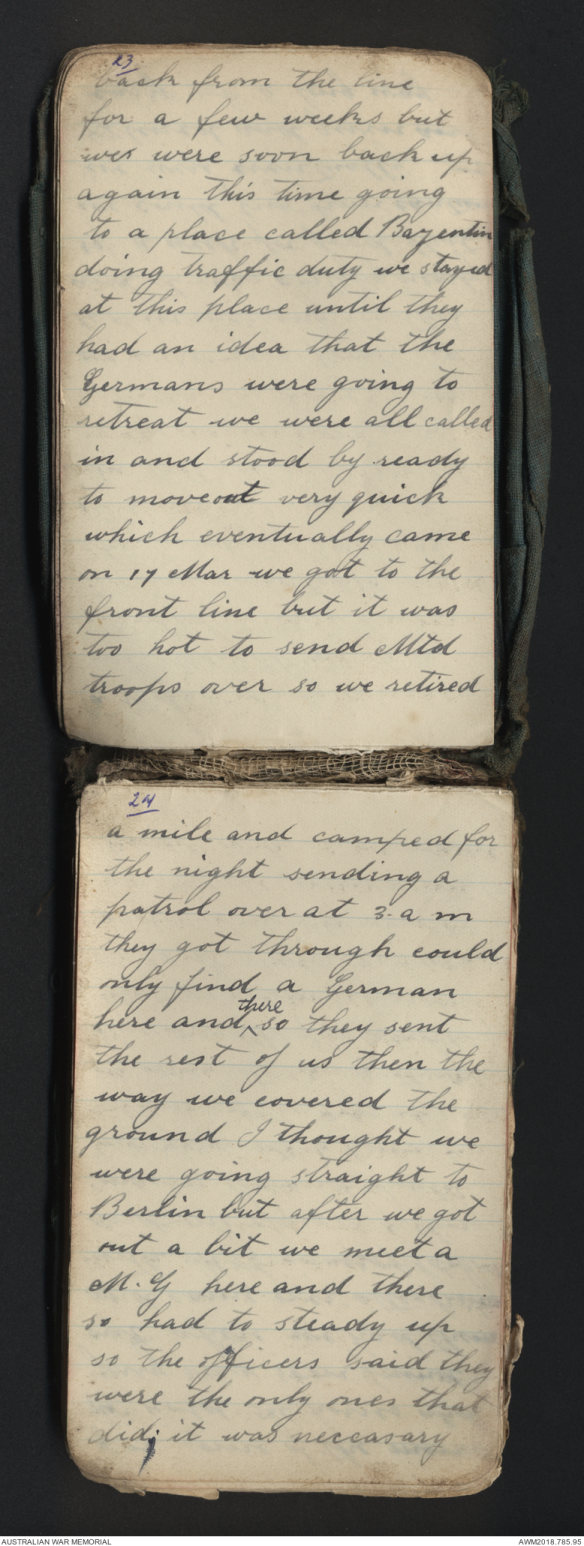 23
back from the line
for a few weeks but
wes were soon back up
again this time going
to a place called Bazentin
doing traffic duty we stayed
at this place until they
had an idea that the
Germans were going to
retreat we were all called
in and stood by ready
to move out very quick
which eventually came
on 17 Mar we got to the
front line but it was
too hot to send Mtd
troops over so we retired
24
a mile and camped for
the night sending a
patrol over at 3. a m
they got through could
only find a German
here and there so they sent
the rest of us then the
way we covered the
ground I thought we
were going straight to
Berlin but after we got
out a bit we meet a
M. G here and there
so had to steady up
so the officers said they
were the only ones that
did; it was neccasary
AUSTRALIAN WAR MEMORIAL
AWM2018.785.95